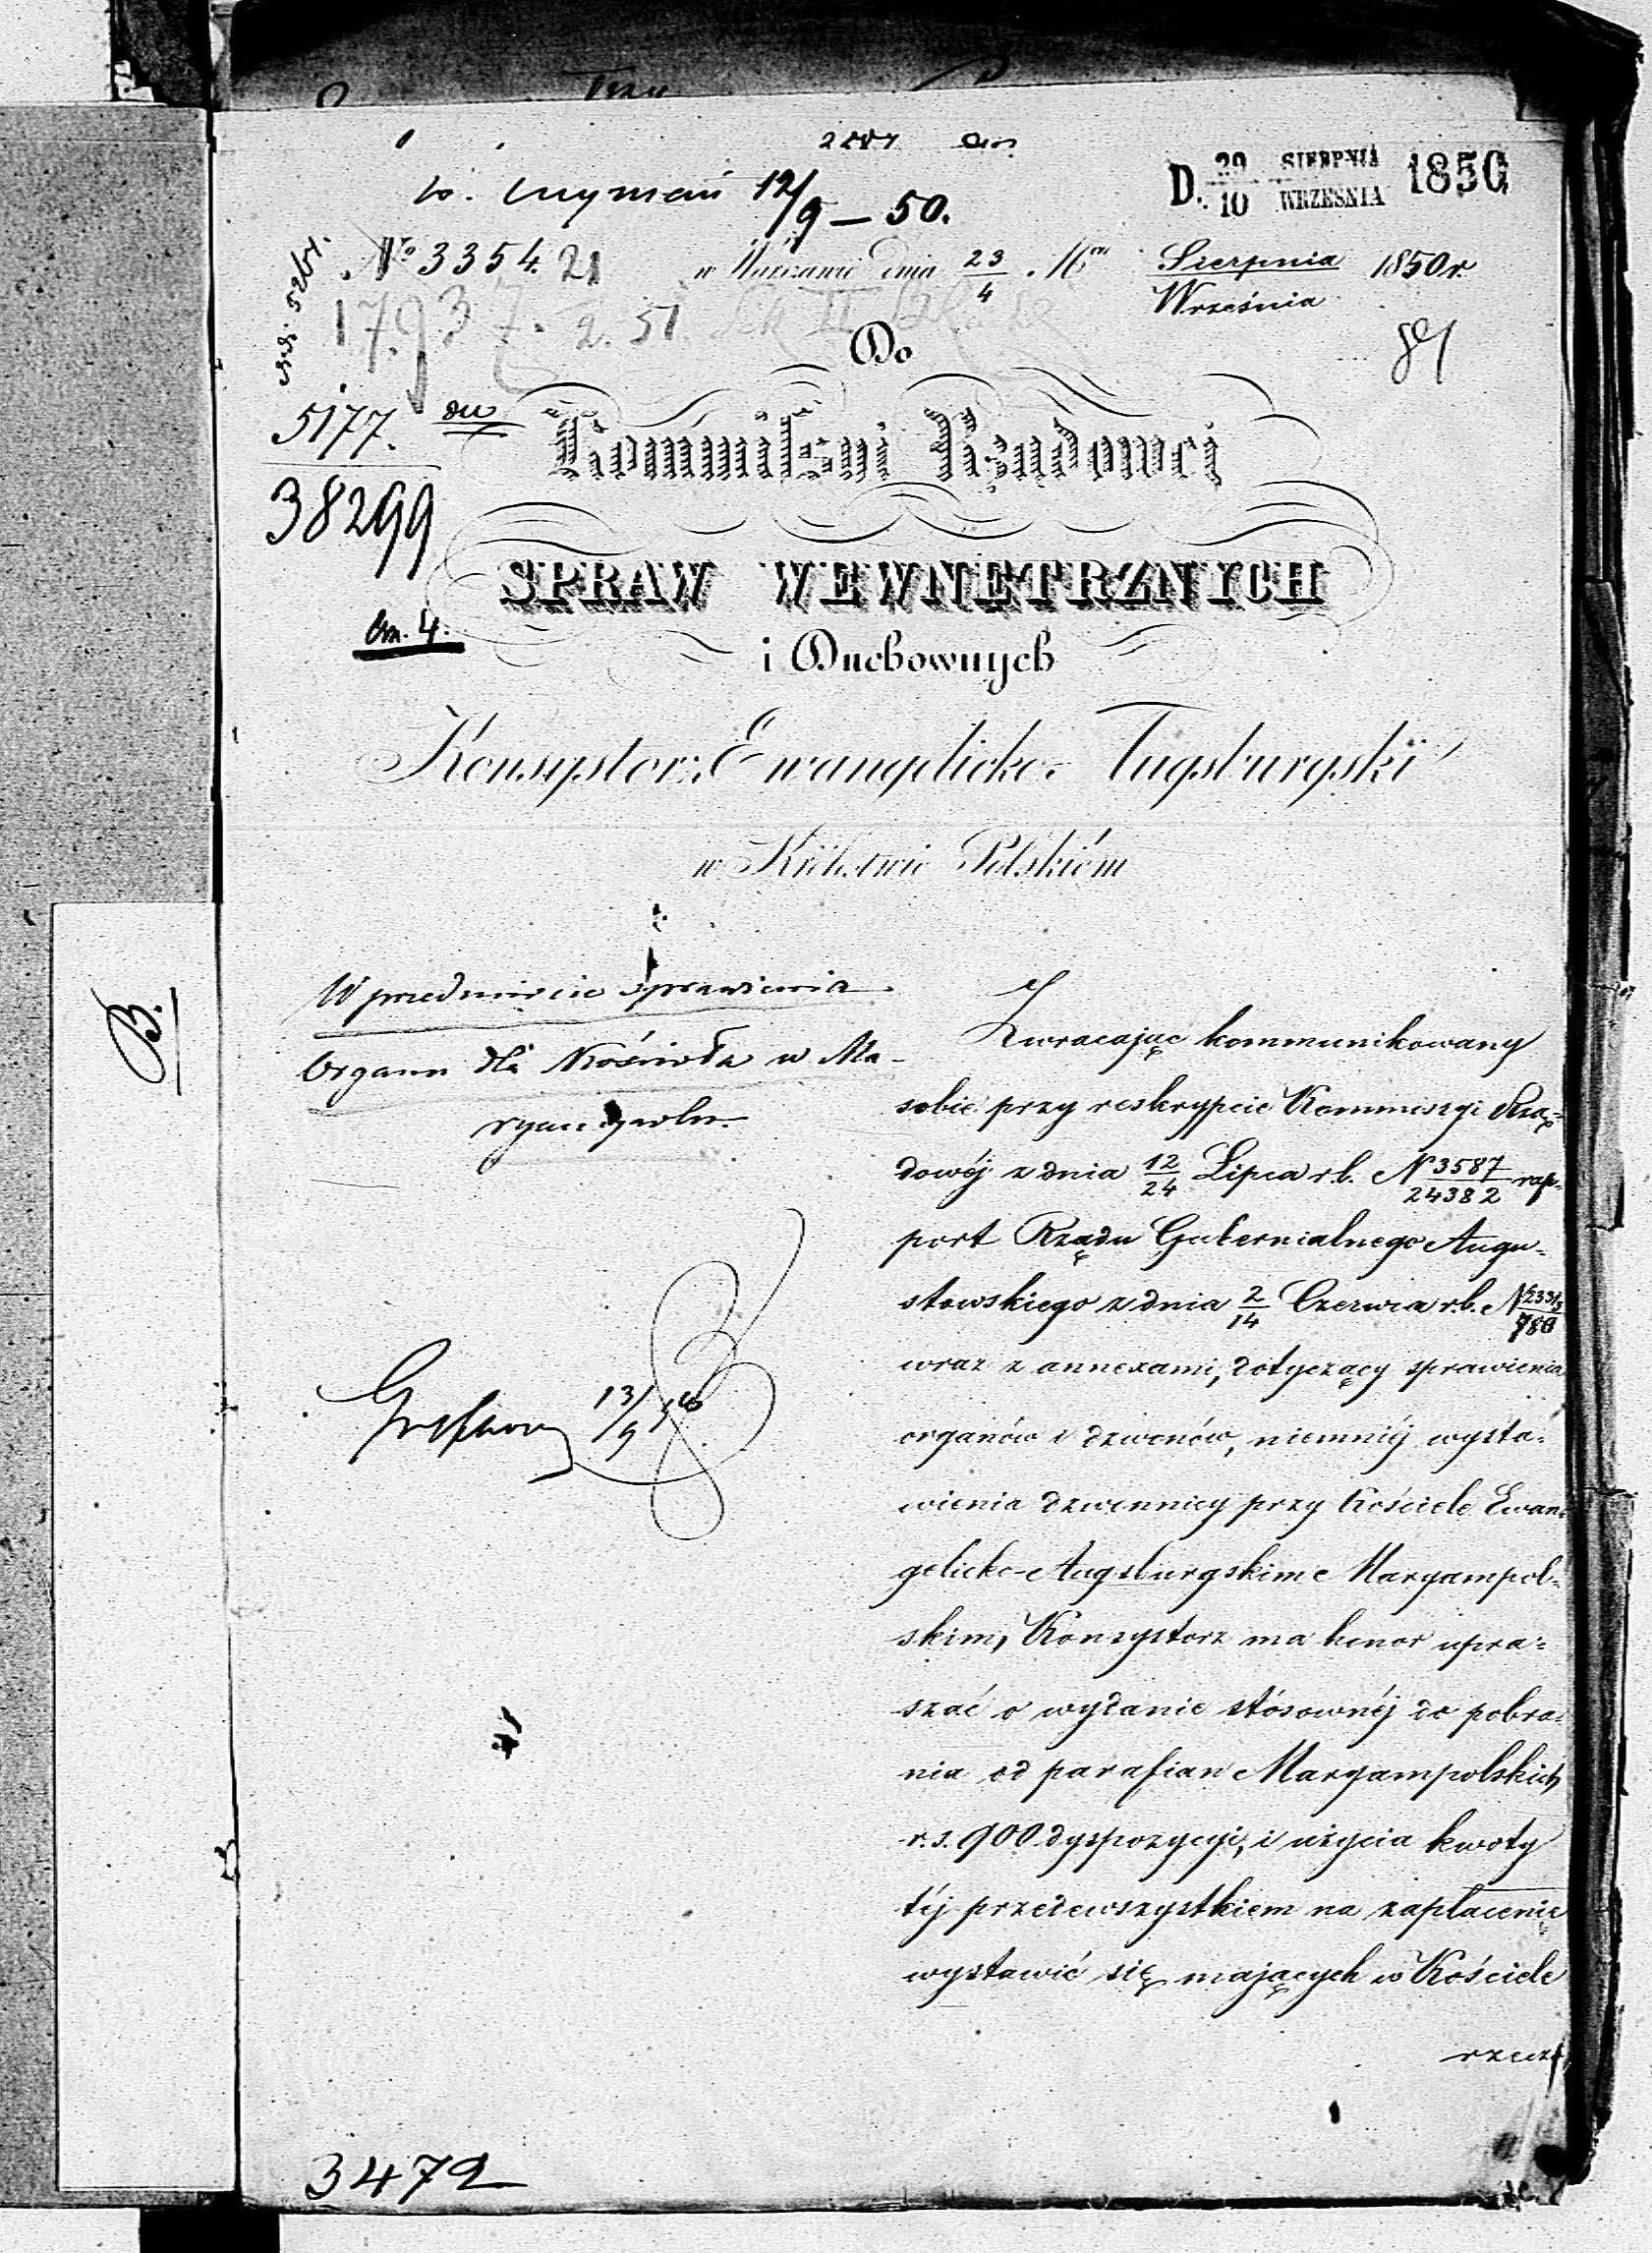 12/9 – 50.
D. 29/10 SIERPNIA/WRZEŚNIA 1850
№ 3354. 21 w Warszawie dnia 23/4 Mca Sierpnia/Września 1850 r.
17937.
Do
5177.
38299
Kommissyi Rządowej
SPRAW WEWNĘTRZNYCH
i Duchownych
Konsystorz Ewangelicko-Augsburgski
w Królestwie Polskiém
W przedmiocie sprawienia
Organu dla Kościoła w Ma-
ryampolu.
B.
Zwracając kommunikowany
sobie przy reskrypcie Kommissyi Rzą-
dowéj z dnia 12/24 Lipca r.b. N 3587/24382 rap-
port Rządu Gubernialnego Augu-
stowskiego z dnia 2/14 Czerwca r.b. N
wraz z annexami, dotyczący sprawienia
organów i dzwonów, niemniéj wysta-
wienia dzwonnicy przy Kościele Ewan-
gelicko-Augsburgskim Maryampol-
skim, Konsystorz ma honor upra-
szać o wydanie stósownéj do pobra-
nia od parafian Maryampolskich
r.s. 900 dyspozycyi, i użycia kwoty
téj przedewszystkiem na zapłacenie
wystawić się mających w Kościele
13/9
3472